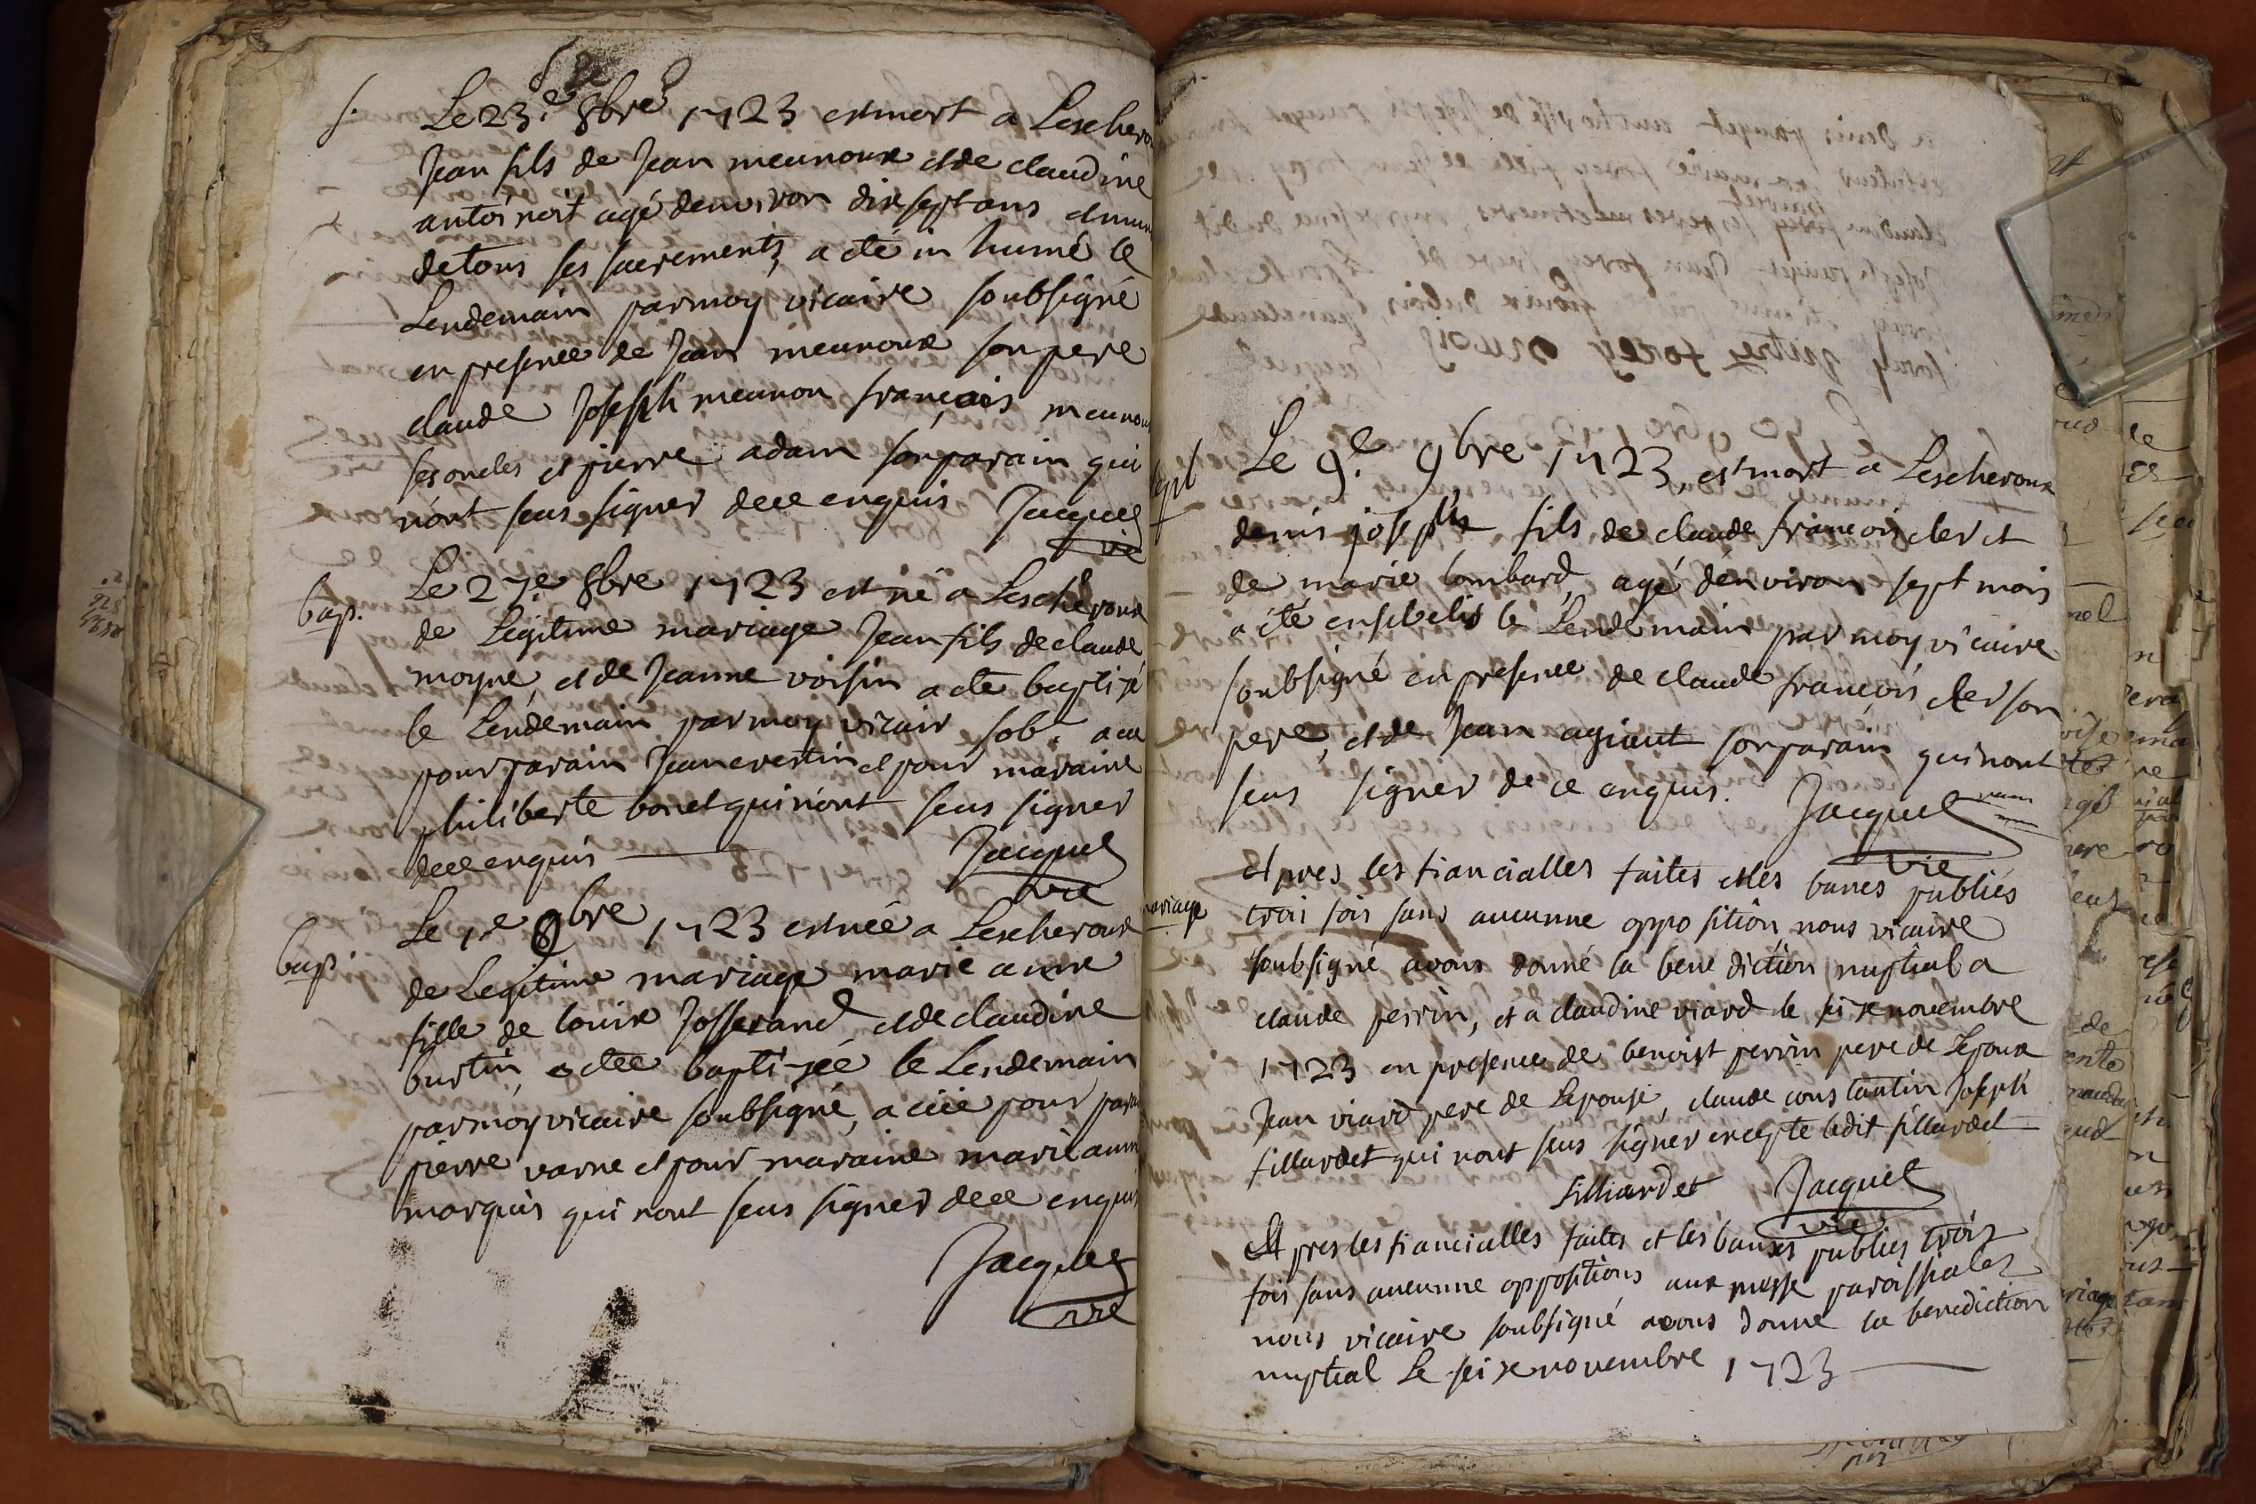 s. Le 23.e 8bre 1723 est mort a Lescherou
Jean fils de Jean meunoux et de claudine
antoinoit agé denviron dix sept ans et muni
de tous ses sacrements, a eté in humé le
Lendemain par moy vicaire soubsigné
en presence de Jean meunoux son pere
claude Joseph meunon françois meunou
ses oncles et pierre adam son parain qui
nont sceus signer de ce enquis Jacquet
vic
bap. Le 27.e 8bre 1723 est né a Lescheroux
de Legitime mariage Jean fils de claude
moyne, et de Jeanne voisin a eté baptisé
le Lendemain par moy vicair sob. a eu
pour parain Jean crestin et pour maraine
philiberte bonet qui nont sceus signer
de ce enquis Jacquet
vic
bap. Le 1.e 9bre 1723 est née a Lescheroux
de Legitime mariage marie anne
fille de louix Josserand et de claudine
burtin, a etee baptisée le Lendemain
par moy vicaire soubsigné, a eüe pour para
pierre varne et pour maraine marie anne
marquis qui nont sceus signer de ce enquis
Jacquet
vic
sept Le 9.e 9bre 1723, est mort a Lescheroux
denis joseph fils de claude françois cler et
de marie lombard, agé denviron sept mois
a eté ensebelis le Lendemain par moy vicaire
soubsigné en presence de claude françois cler son
pere, et de Jean agniut son parain qui nont
sceus signer de ce enquis. Jacquet
vic
mariage et pres les fiancialles faites et les banes publiés
trois fois sans aucunne opposition nous vicaire
soubsigné avons donné la bene diction nuptial a
claude perrin, et a claudine viard le seize novembre
1723 en presence de benoist perrin pere de Lepoux
Jean viard pere de Lepouse, claude constantin Joseph
fillardet qui nont sceus signer excepte ledit fillardet
filliardet Jacquet
vic
Et pres les fiancialles faites et les banes publies trois
fois sans aucunne oppositions aux messe paroissiales
nous vicaire soubsigné avons donne la benediction
nuptial Le seize novembre 1723